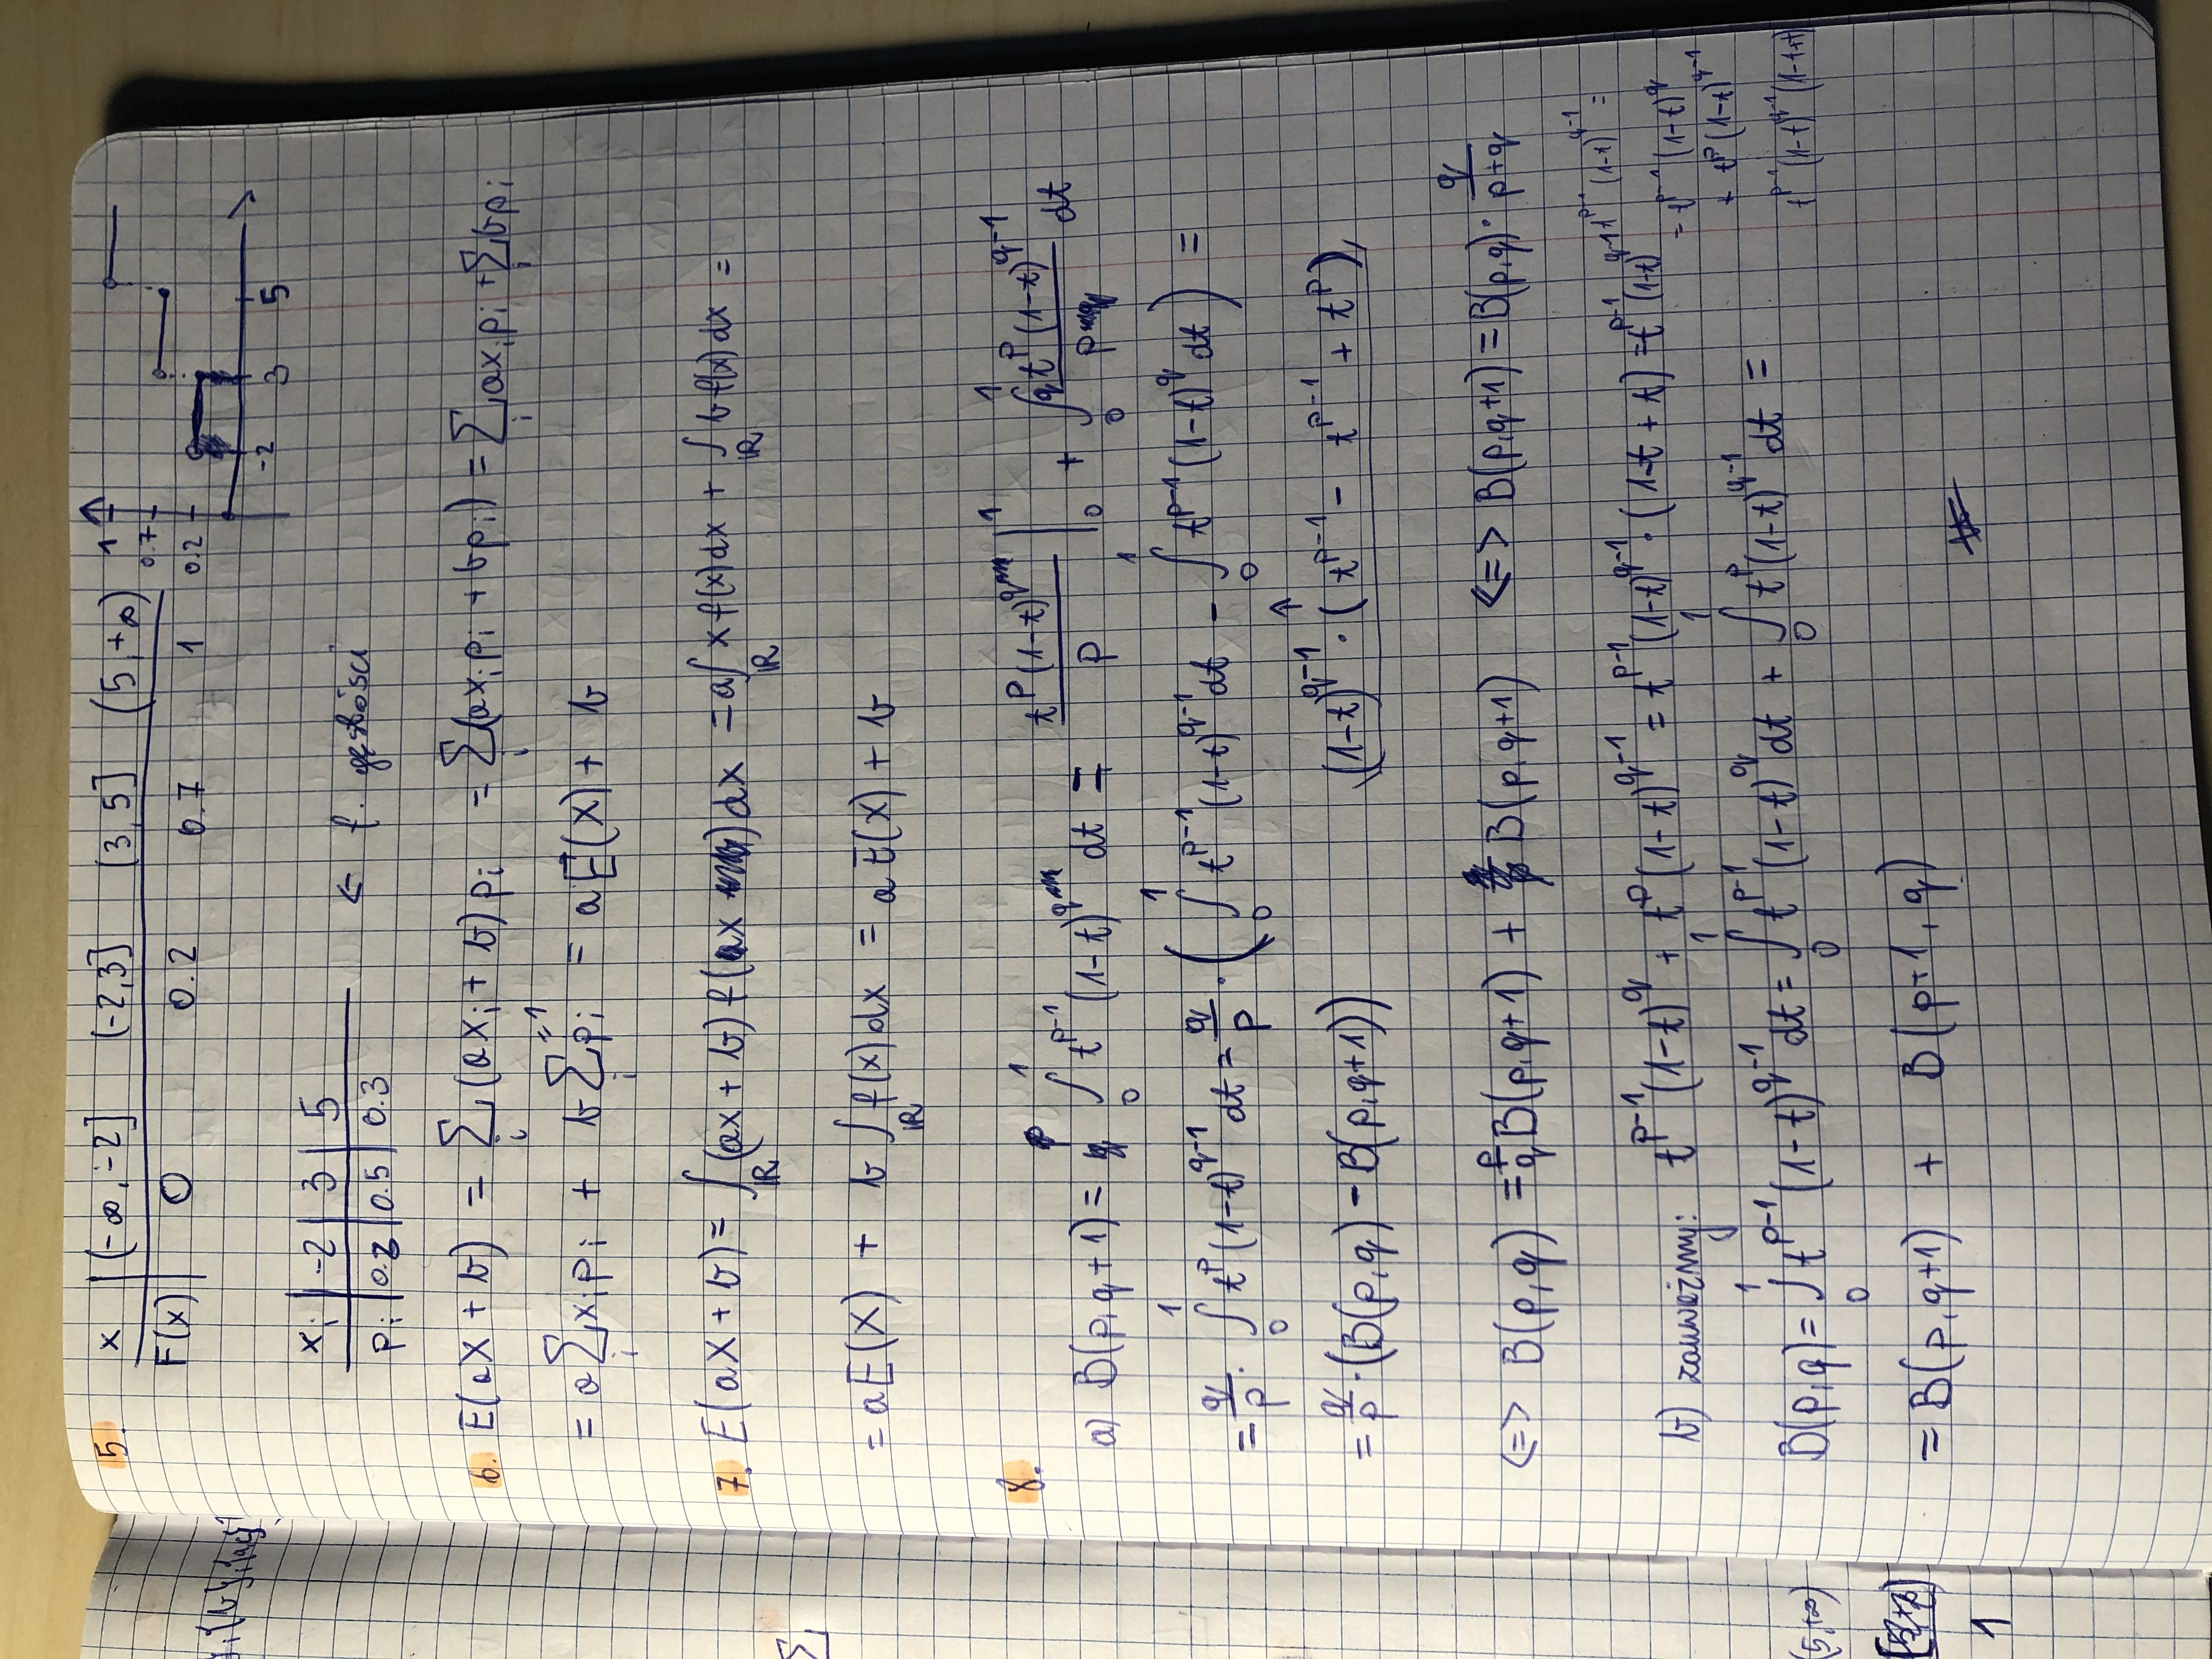 5. x | (-∞, -2] (-2, 3] (3, 5] (5, +∞)
F(x) | 0 0.2 0.7 1
1
0.7
0.2
-2 3 5
x_i | -2 | 3 | 5
p_i | 0.2 | 0.5 | 0.3 ← f. gęstości
6. E(aX + b) = Σ_i (ax_i + b) p_i = Σ_i (ax_i p_i + bp_i) = Σ_i ax_i p_i + Σ_i bp_i
= a Σ_i x_i p_i + b Σ_i p_i = a E(X) + b
=1
7. E(aX + b) = ∫_ℝ (ax + b) f(x) dx = a ∫_ℝ x f(x) dx + ∫_ℝ b f(x) dx =
= a E(X) + b ∫_ℝ f(x) dx = a E(X) + b
8.
a) B(p, q+1) = ∫_0^1 t^{p-1} (1-t)^q dt = t^p (1-t)^q / p |_0^1 + ∫_0^1 q t^p (1-t)^{q-1} / p dt
= q/p · ∫_0^1 t^p (1-t)^{q-1} dt = q/p · ( ∫_0^1 t^{p-1} (1-t)^{q-1} dt - ∫_0^1 t^{p-1} (1-t)^q dt ) =
= q/p · (B(p, q) - B(p, q+1)) ↑ (1-t)^{q-1} · (t^{p-1} - t^{p-1} + t^p)
<=> B(p, q) = p/q B(p, q+1) + B(p, q+1) <=> B(p, q+1) = B(p, q) · q/(p+q)
b) zauważmy: t^{p-1} (1-t)^q + t^p (1-t)^{q-1} = t^{p-1} (1-t)^{q-1} · (1-t + t) = t^{p-1} (1-t)^{q-1}
t^{p-1} (1-t)^{q-1} =
= t^{p-1} (1-t)^q
+ t^p (1-t)^{q-1}
t^{p-1} (1-t)^{q-1} (1-t+t)
B(p, q) = ∫_0^1 t^{p-1} (1-t)^{q-1} dt = ∫_0^1 t^{p-1} (1-t)^q dt + ∫_0^1 t^p (1-t)^{q-1} dt =
= B(p, q+1) + B(p+1, q)
Σ
(5, +∞)
1